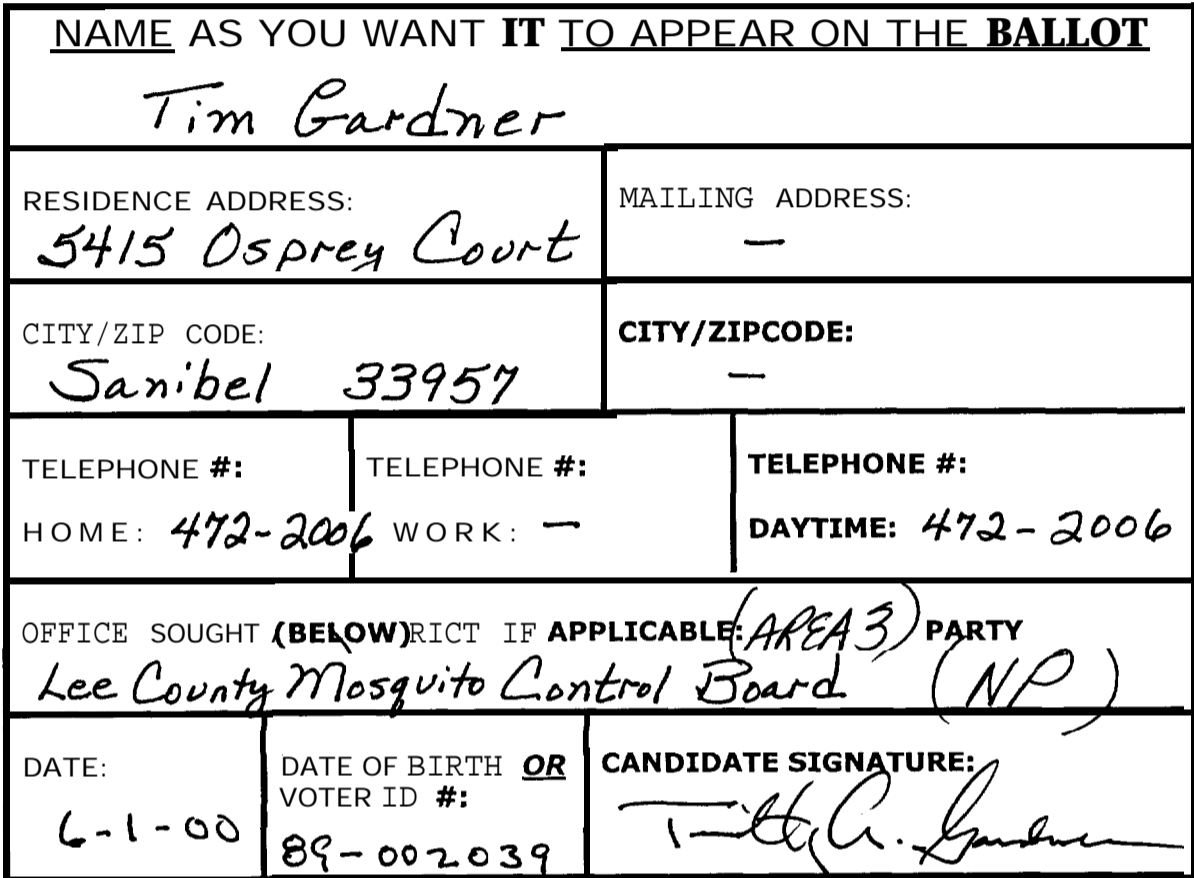 NAME AS YOU WANT IT TO APPEAR ON THE BALLOT
Tim Gardner
RESIDENCE ADDRESS:
5415 Osprey Court
MAILING ADDRESS:
—
CITY/ZIP CODE:
Sanibel 33957
CITY/ZIPCODE:
—
TELEPHONE #:
HOME: 472-2006
TELEPHONE #:
WORK: —
TELEPHONE #:
DAYTIME: 472-2006
OFFICE SOUGHT (BELOW)RICT IF APPLICABLE: (AREA 3) PARTY
Lee County Mosquito Control Board (NP)
DATE:
6-1-00
DATE OF BIRTH OR
VOTER ID #:
89-002039
CANDIDATE SIGNATURE:
A. Gardner